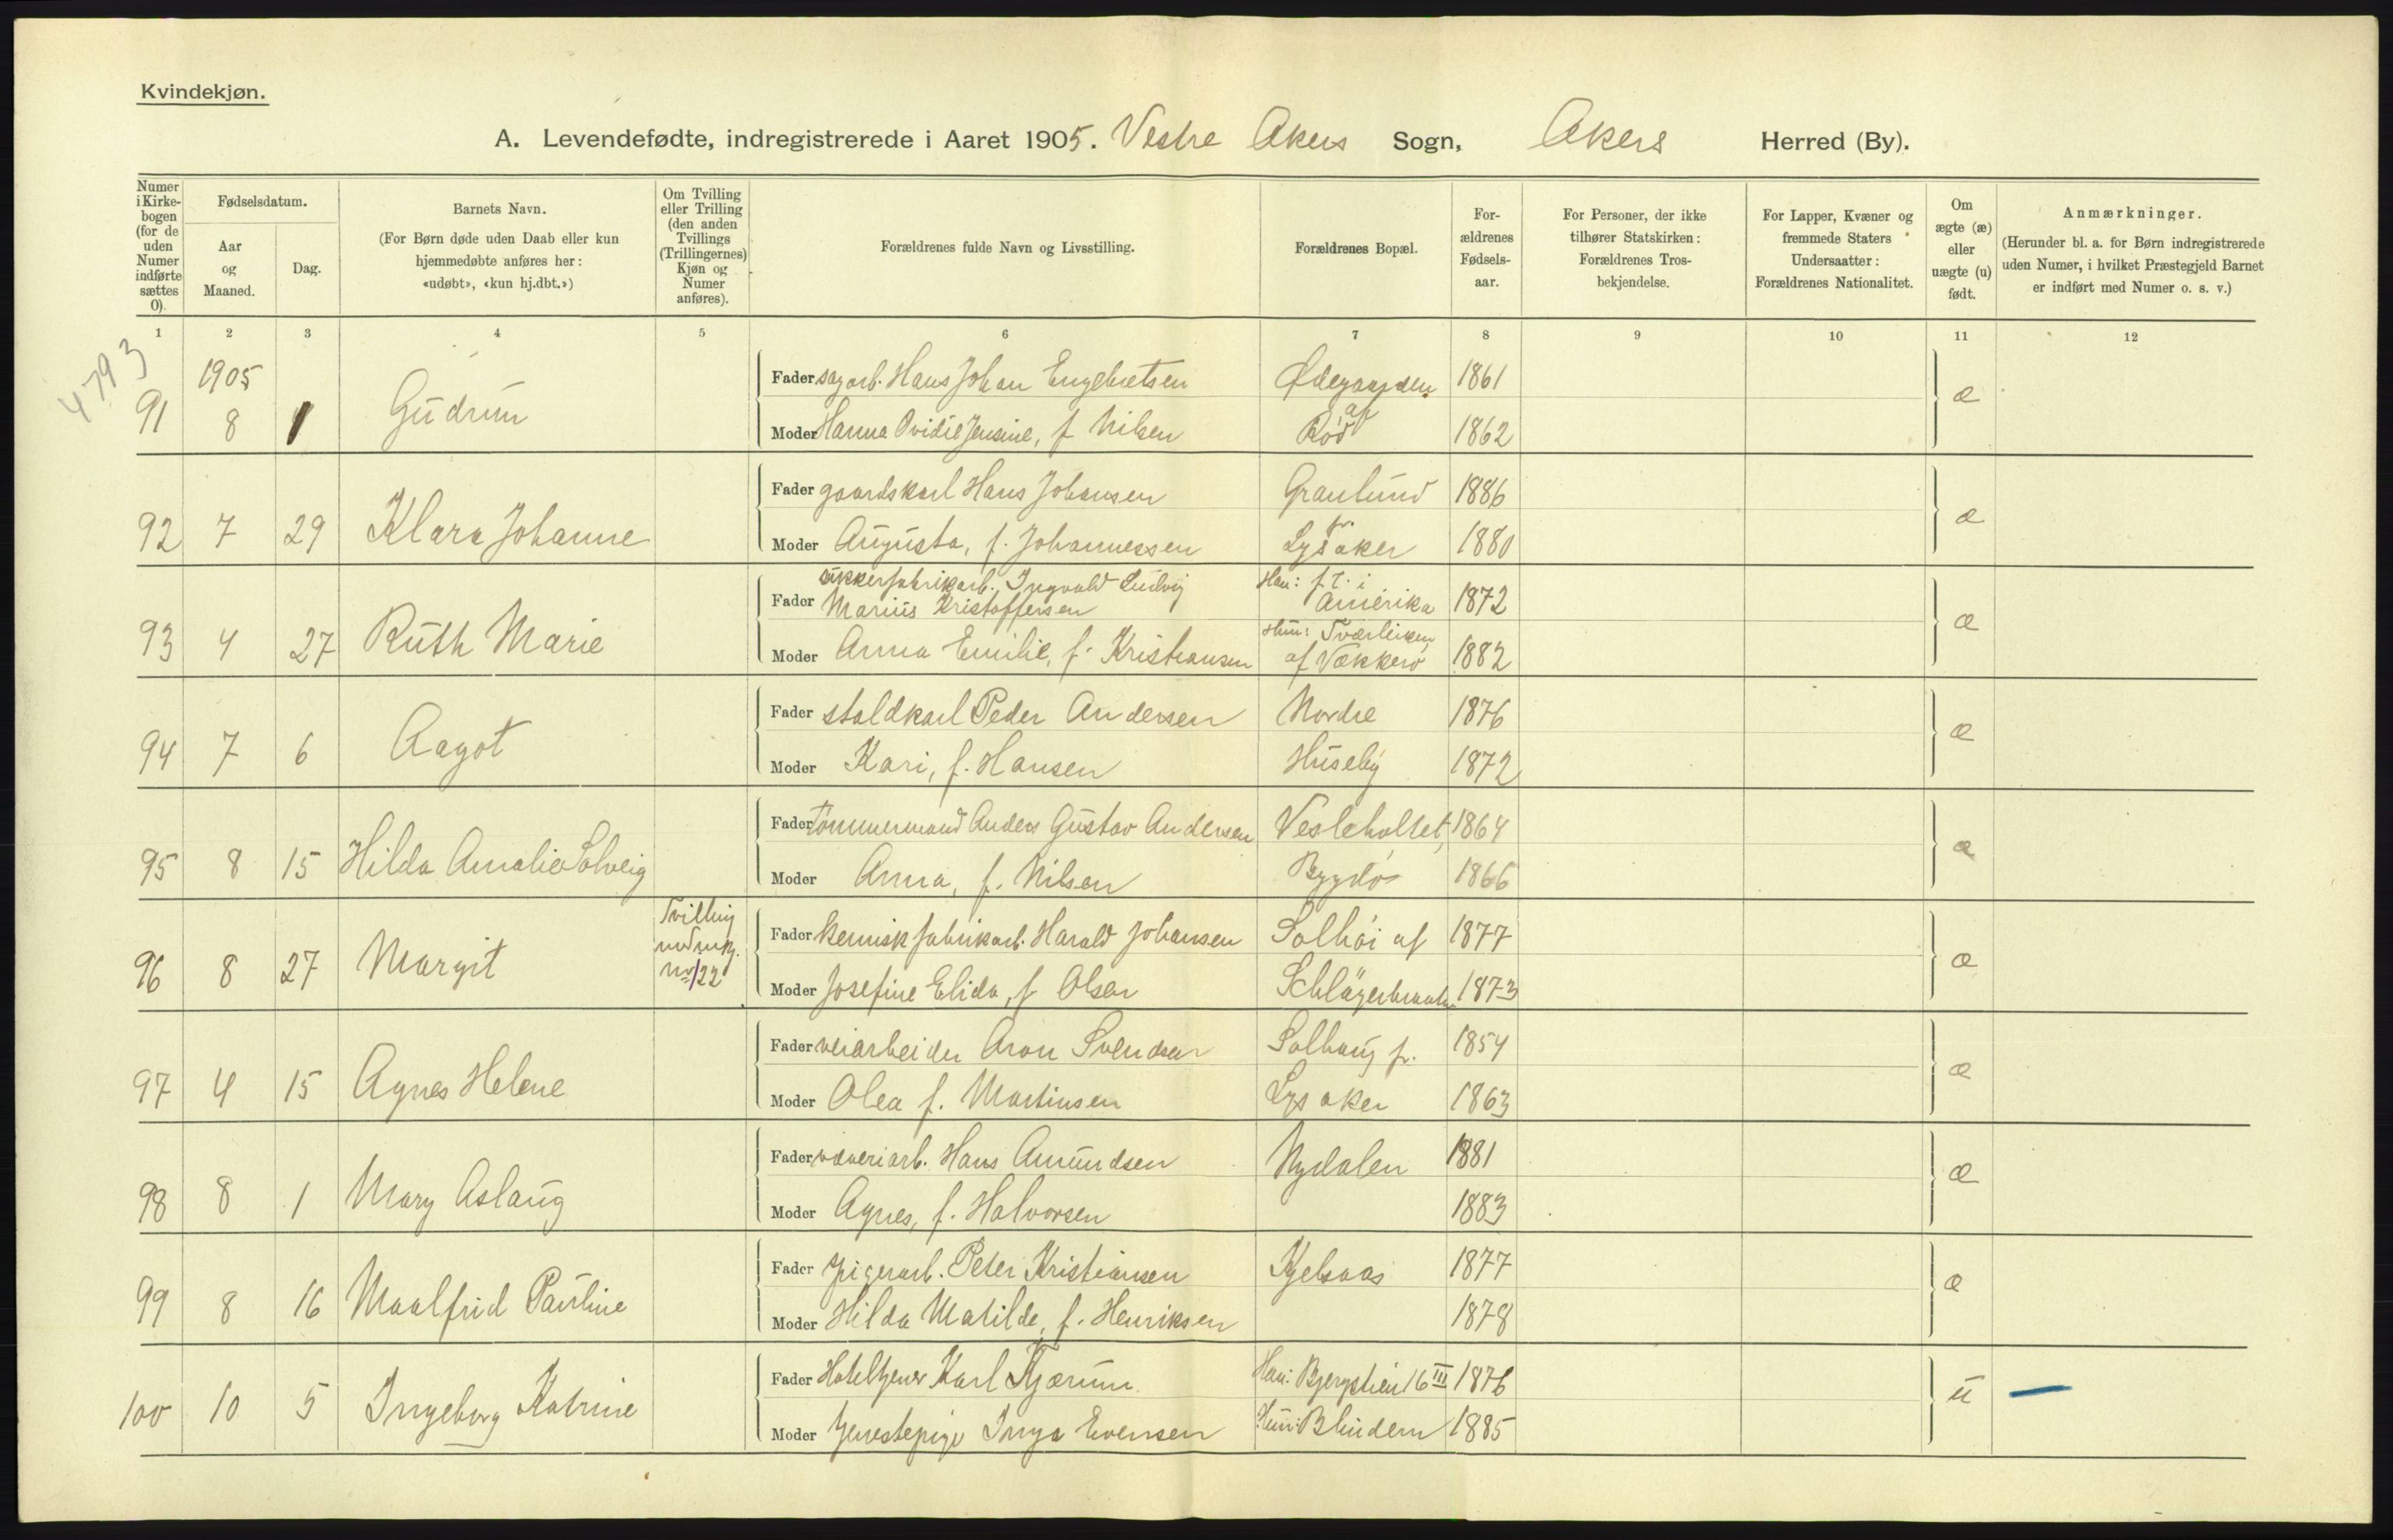 Kvindekjøn.
A. Levendefødte, indregistrerede i Aaret 1905. Vestre Akers Sogn, Akers Herred (By).
Numer i Kirkebogen (for de uden Numer indførte sættes 0).
Fødselsdatum.
Aar og Maaned.
Dag.
Barnets Navn.
(For Børn døde uden Daab eller kun hjemmedøbte anføres her: «udøbt», «kun hj.dbt.»)
Om Tvilling eller Trilling (den anden Tvillings (Trillingernes) Kjøn og Numer anføres).
Forældrenes fulde Navn og Livsstilling.
Forældrenes Bopæl.
Forældrenes Fødselsaar.
For Personer, der ikke tilhører Statskirken: Forældrenes Trosbekjendelse.
For Lapper, Kvæner og fremmede Staters Undersaatter: Forældrenes Nationalitet.
Om ægte (æ) eller uægte (u) født.
Anmærkninger.
(Herunder bl. a. for Børn indregistrerede uden Numer, i hvilket Præstegjeld Barnet er indført med Numer o. s. v.)
1 2 3 4 5 6 7 8 9 10 11 12
4793
1905
Fader sagarb. Hans Johan Engebretsen Ødegaarden 1861
91 8 1 Gudrun æ
Moder Hanna Ovidie Jensine, f. Nilsen af Röd 1862
Fader gaardskarl Hans Johansen Granlund 1886
92 7 29 Klara Johanne æ
Moder Augusta, f. Johannessen pr. Lysaker 1880
Fader sukkerfabrikarb. Ingvald Ludvig Marius Kristoffersen Han: f. t. i Amerika 1872
93 4 27 Ruth Marie æ
Moder Anna Emilie, f. Kristiansen Hun: af Vækkerö 1882
Fader staldkarl Peder Andersen Nordre 1876
94 7 6 Aagot æ
Moder Kari, f. Hansen Huseby 1872
Fader tömmermand Anders Gustav Andersen Vesleholtet, 1864
95 8 15 Hilda Amalie Solveig æ
Moder Anna, f. Nilsen Bygdö 1866
Fader kemisk fabrikarb. Harald Johansen Solhöi af 1877
96 8 27 Margit Tvilling med mkj. no 122 æ
Moder Josefine Elida, f. Olsen 1873
Fader veiarbeider Aron Svendsen Solhaug pr. 1854
97 4 15 Agnes Helene æ
Moder Olea f. Martinsen Lysaker 1863
Fader væveriarb. Hans Amundsen Nydalen 1881
98 8 1 Mary Aslaug æ
Moder Agnes, f. Halvorsen 1883
Fader Peter Kristiansen Kjelsaas 1877
99 8 16 Maalfrid Pauline æ
Moder Hilda Matilde, f. Henriksen 1878
Fader Hoteltjener Karl Kjærum Han: Bjergstien 16 III 1876
100 10 5 Ingeborg Katrine u
Moder tjenestepige Inga Evensen Hun: Blindern 1885